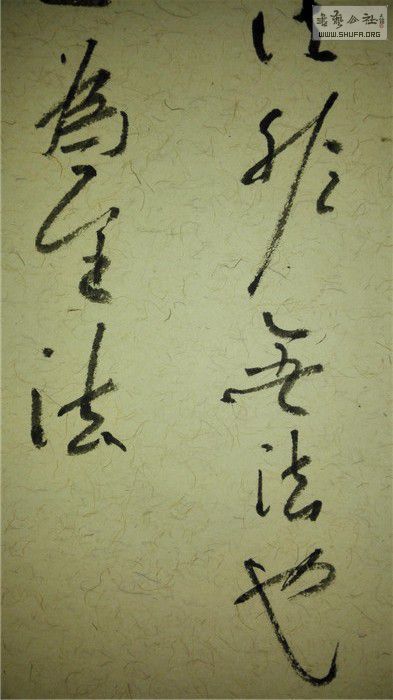 書藝公社
WWW.SHUFA.ORG
法非無法也
為至法